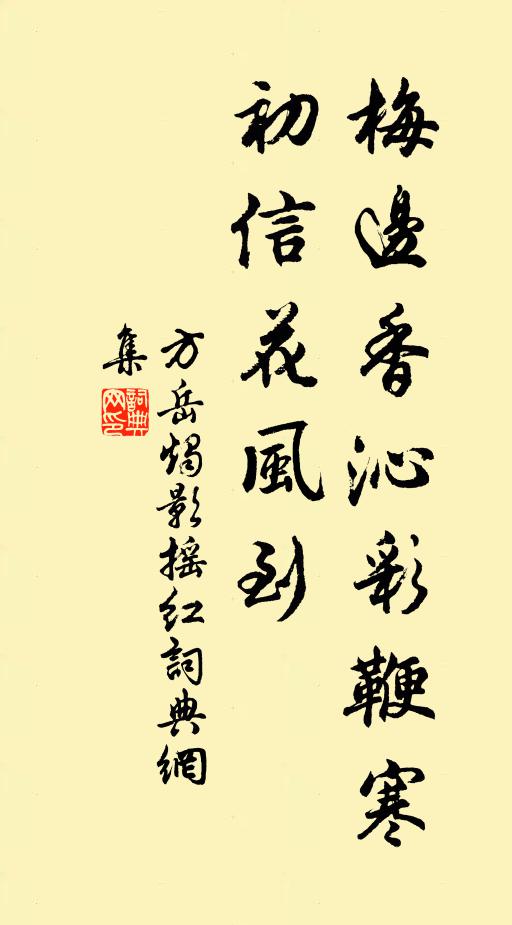 梅邊香沁彩鞭寒
初信花風到
方岳燭影搖紅詞典網
集
詞典
网印